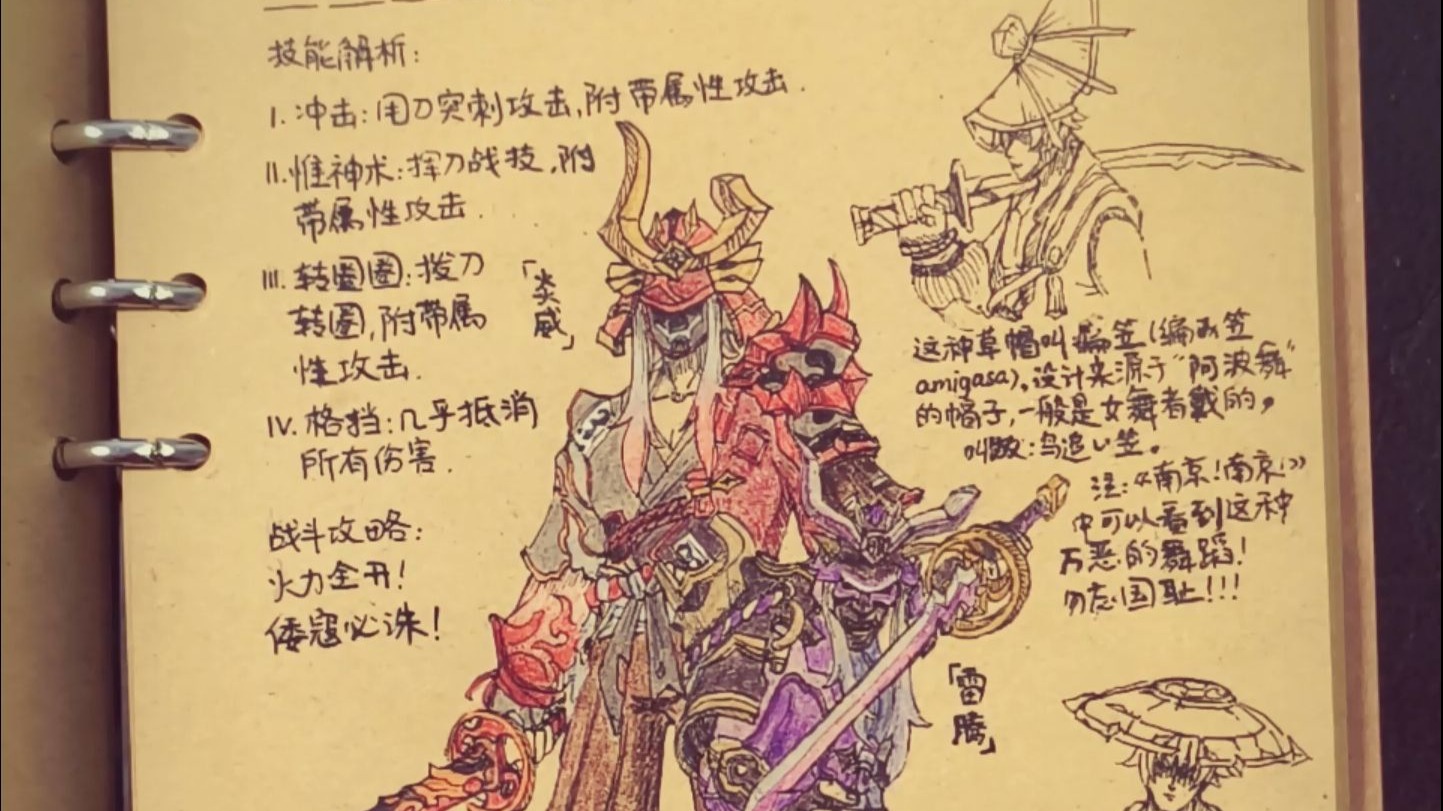 技能解析:
I. 冲击: 用刀突刺攻击,附带属性攻击.
II. 惟神术: 挥刀战技,附
带属性攻击.
III. 转圈圈: 拨刀
转圈,附带属
性攻击.
IV. 格挡: 几乎抵消
所有伤害.
战斗攻略:
火力全开!
倭寇必诛!
「炎威」
这种草帽叫编笠(编み笠
amigasa),设计来源于“阿波舞”
的帽子,一般是女舞者戴的,
叫做:鸟追い笠。
注:《南京!南京!》
中可以看到这种
万恶的舞蹈!
勿忘国耻!!!
「雷腾」